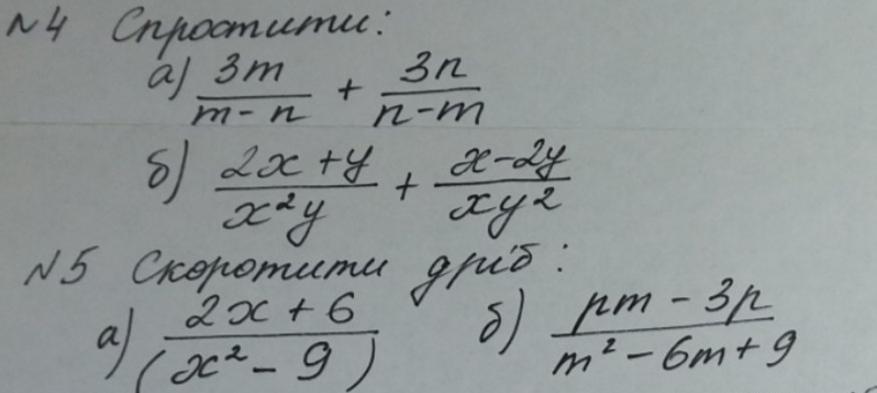 N4 Спростити:
а) 3m/(m-n) + 3n/(n-m)
б) (2x+y)/(x²y) + (x-2y)/(xy²)
N5 Скоротити дріб:
а) (2x+6)/(x²-9) б) (pm-3p)/(m²-6m+9)